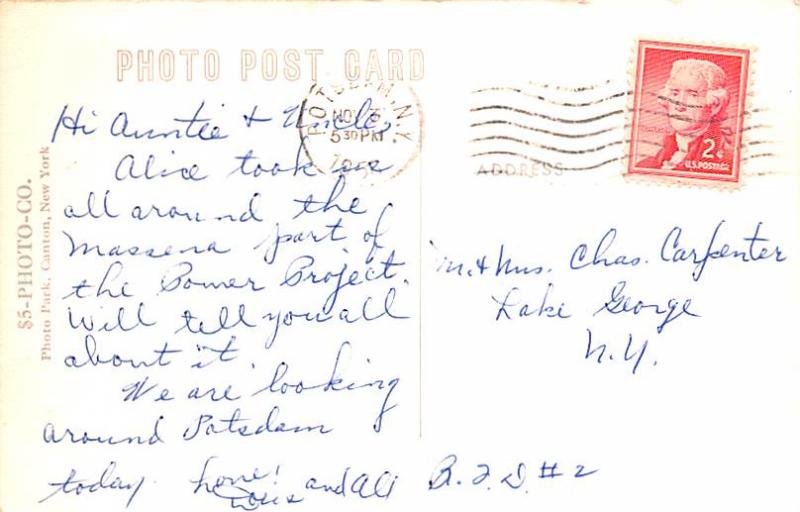 PHOTO POST CARD
$5-PHOTO-CO.
Photo Park, Canton, New York
Hi Auntie & Uncle,
Alice took us
all around the
Massena part of
the Power Project.
Will tell you all
about it.
We are looking
around Potsdam
today. and All
POTSDAM, N.Y.
NOV
5 30 PM
ADDRESS
2¢
U.S. POSTAGE
Mr. & Mrs. Chas. Carpenter
Lake George
N.Y.
#2